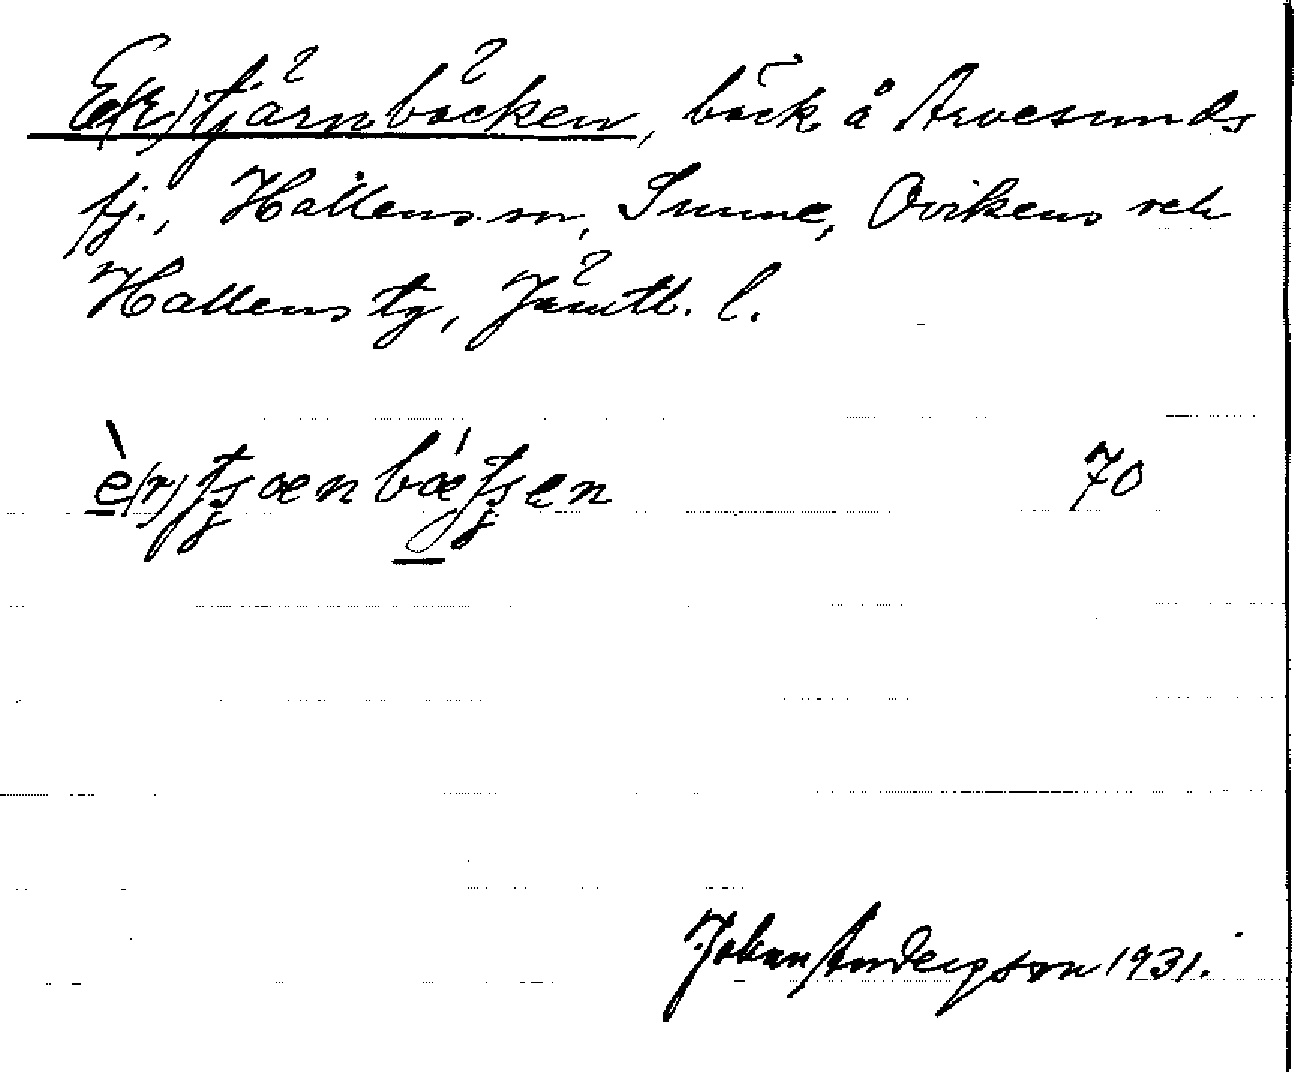 E(r)tjärnbäcken, bäck å Arvesunds
fj., Hallens sn, Sunne, Ovikens och
Hallens tg, Jämtl. l.
è(r)tʂænbǽtʂen 70
Johan Anderson 1931.